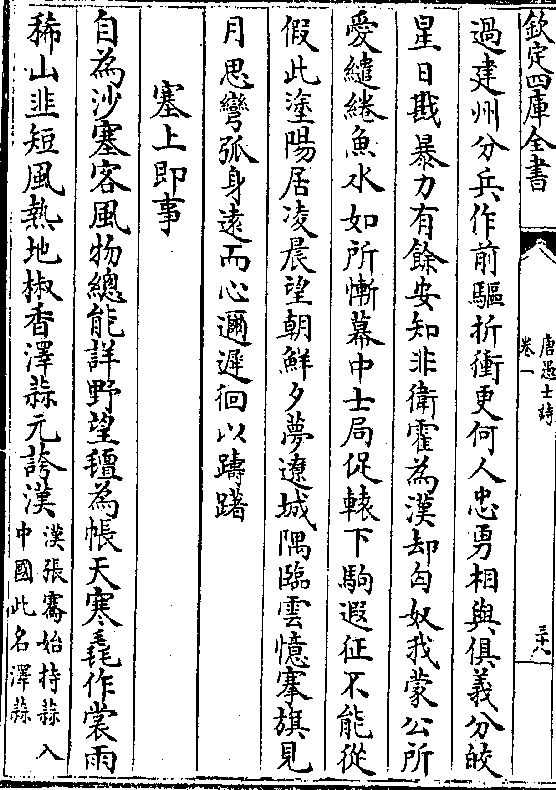 欽定四庫全書
唐愚士詩
卷一
三十八
過建州分兵作前驅折衝更何人忠勇相與俱義分皎
星日戡暴力有餘安知非衛霍為漢却匈奴我蒙公所
愛繾綣魚水如所慚幕中士局促轅下駒遐征不能從
假此塗陽居凌晨望朝鮮夕夢遼城隅臨雲憶搴旗見
月思彎弧身遠而心邇遲徊以躊躇
塞上即事
自為沙塞客風物總能詳野望氊為帳天寒毳作裳雨
稀山韭短風熱地椒香澤蒜元誇漢漢張騫始持蒜入中國此名澤蒜